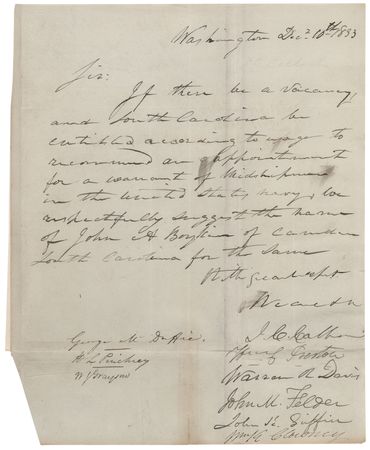 Washington Dec.r 10th 1833
Sir:
If there be a vacancy,
and South Carolina be
entitled according to usage to
recommend an appointment
for a warrant of Midshipman
in the United States Navy, we
respectfully suggest the name
of John H Boykin of Camden
South Carolina for the same
With great rspt
We are &c
J. C. Calhoun
Wm C. Preston
George McDuffie.
H L Pinckney
Warren R Davis
W J Grayson
John M. Felder
John K. Griffin
Wm K Clowney